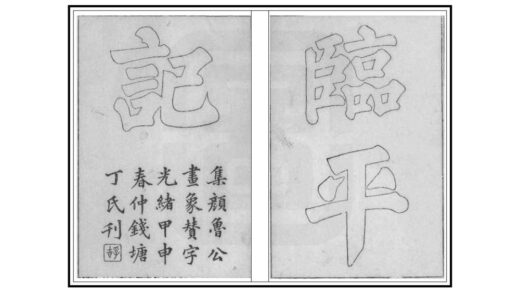 臨平
記
集顏魯公
畫象贊字
光緒甲申
春仲錢塘
丁氏刊